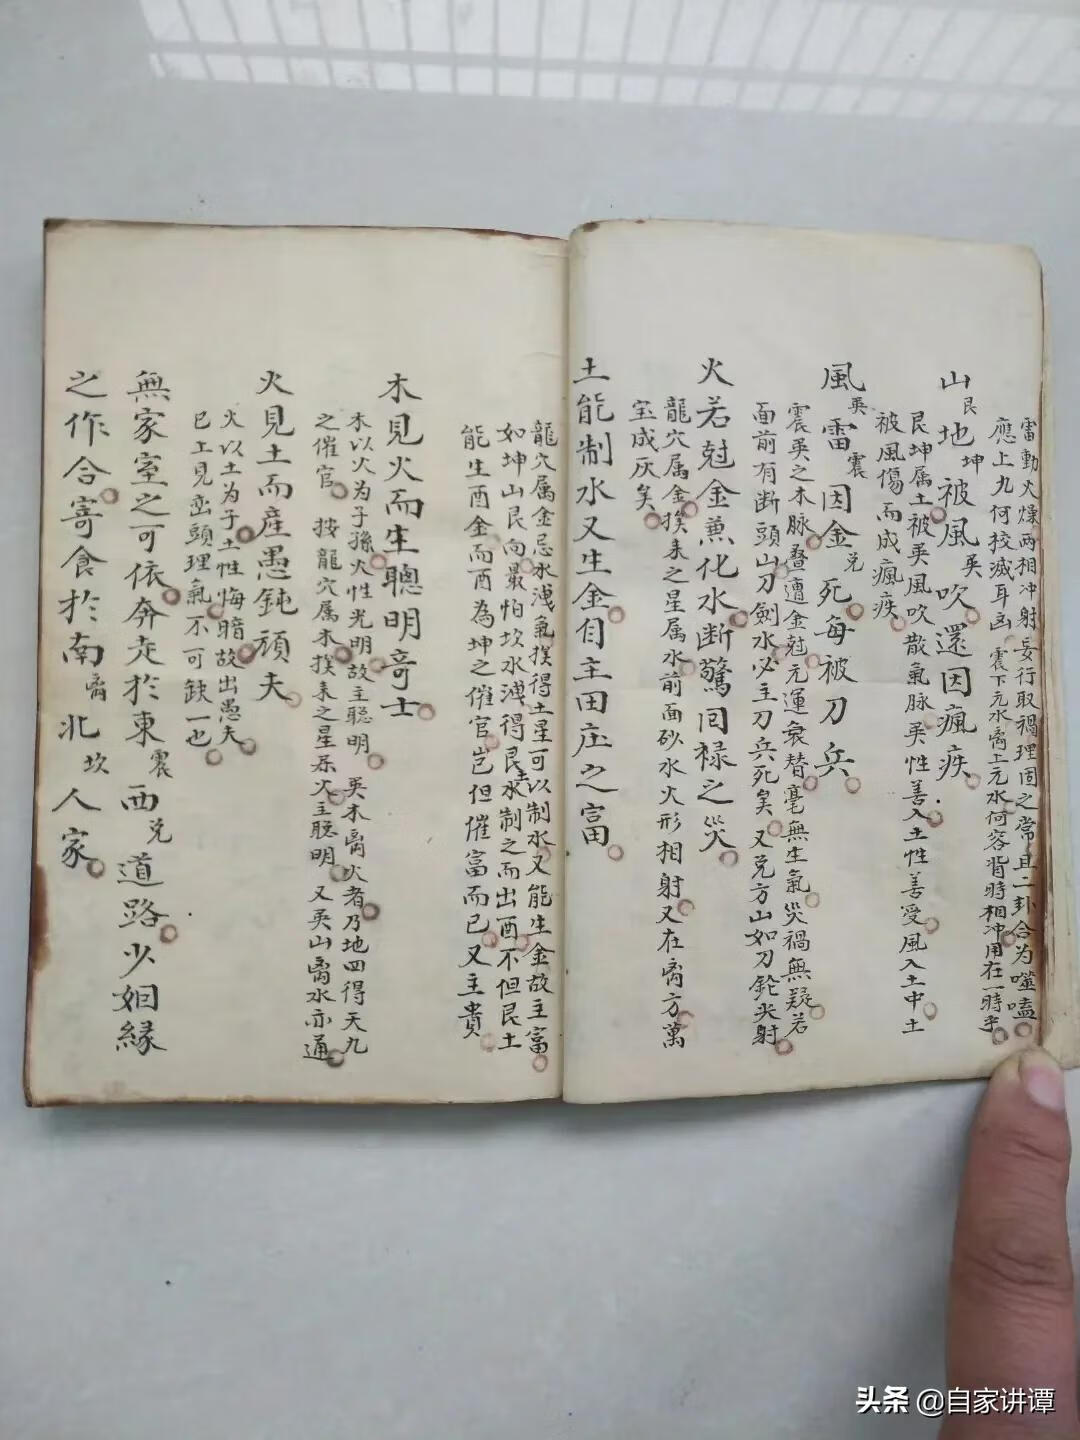 雷動火燥两相冲射妄行取禍理固之常且二卦合为噬嗑
應上九何校滅耳凶震下元水离上元水何容背時相冲用在一時乎
山艮地坤被風巽吹還因瘋疾
艮坤属土被巽風吹散氣脉巽性善入土性善受風入土中土
被風傷而成瘋疾
風巽雷震因金兑死每被刀兵
震巽之木脉叠遭金尅元運衰替毫無生氣災禍無疑若
面前有断頭山刀劍水必主刀兵死矣又兑方山如刀鎗尖射
火若尅金蒹化水断驚回禄之災
龍穴属金挨来之星属水前面砂水火形相射又在离方萬
宝成灰矣
土能制水又生金自主田庄之富
龍穴属金忌水洩氣挨得土星可以制水又能生金故主富
如坤山艮向最怕坎水洩得艮土水制之而出酉不但艮土
能生酉金而酉為坤之催官岂但催富而已又主貴
木見火而生聰明奇士
木以火为子孫火性光明故主聪明 巽木离火者乃地四得天九
之催官 按龍穴属木挨来之星系火主聪明 又巽山离水亦通
火見土而產愚鈍頑夫
火以土为子土性悔暗故出愚夫
已上見峦頭理氣不可缺一也
無家室之可依奔走於東震西兑道路少姻緣
之作合寄食於南离北坎人家
头条 @自家讲谭